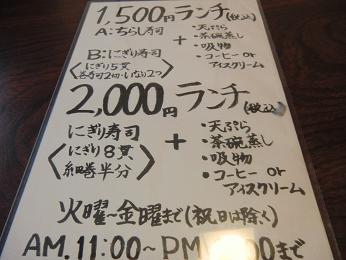 1,500円ランチ(税込)
A:ちらし寿司 + ・天ぷら
・茶碗蒸し
B:にぎり寿司 ・吸物
にぎり5貫 ・コーヒー or
巻寿司2切・いなり2つ アイスクリーム
2,000円ランチ(税込)
にぎり寿司 + ・天ぷら
にぎり8貫 ・茶碗蒸し
細巻半分 ・吸物
・コーヒー or
アイスクリーム
火曜~金曜まで(祝日は除く)
AM.11:00~PM :00まで